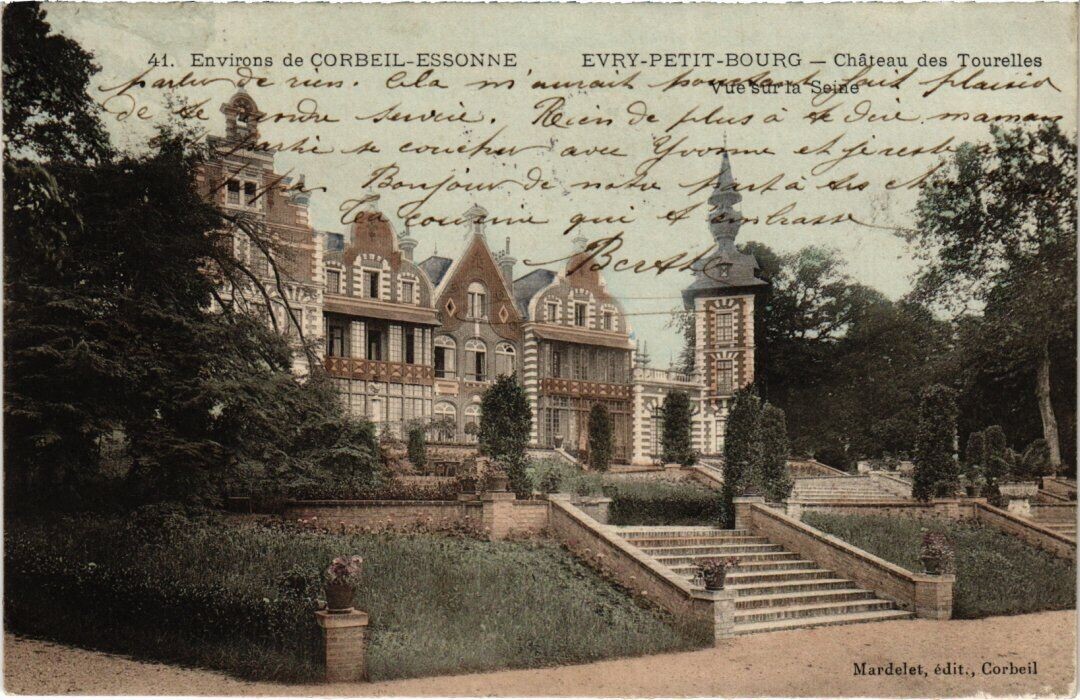 41. Environs de CORBEIL-ESSONNE EVRY-PETIT-BOURG — Château des Tourelles
Vue sur la Seine
parler de rien. Cela m'aurait pourtant fait plaisir
de te rendre service. Rien de plus à te dire maman
partie se coucher avec Yvonne et je reste
Bonjour de notre part à tes
ta cousine qui t'embrasse
Berthe
Mardelet, édit., Corbeil